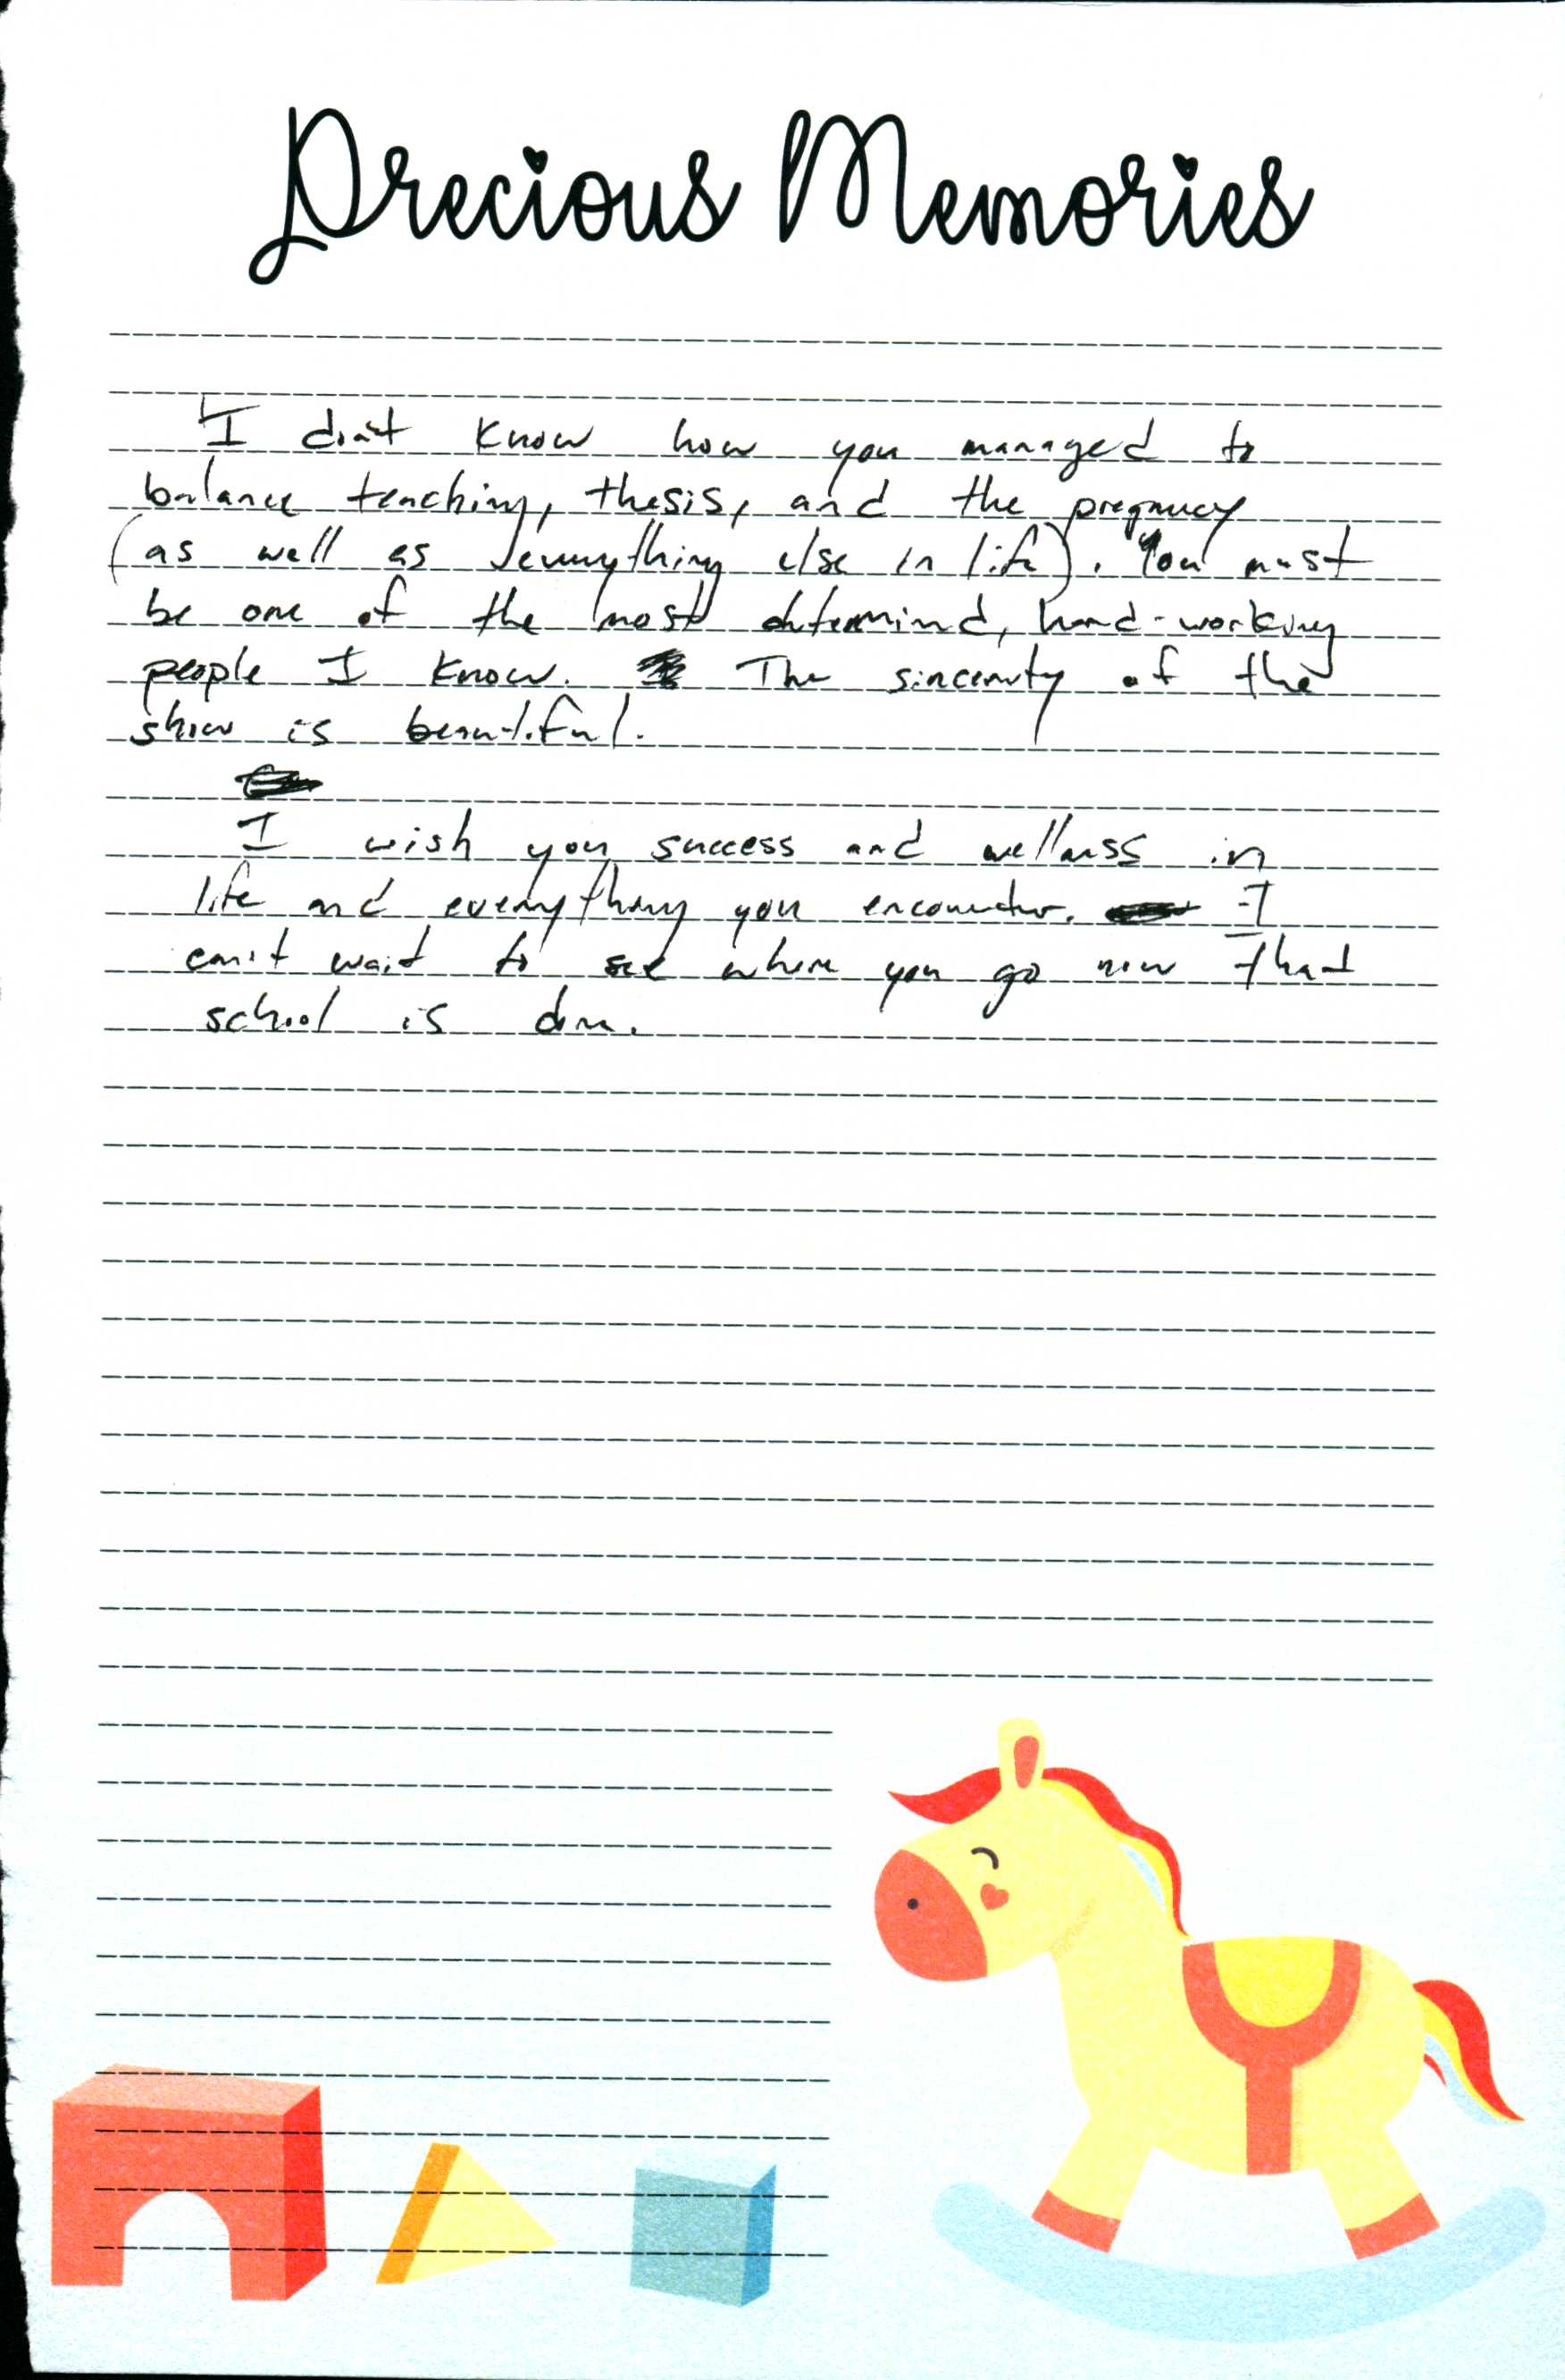 Precious Memories
I don't know how you managed to
balance teaching, thesis, and the pregnancy
(as well as everything else in life). You must
be one of the most determind, hard-working
people I know. The sincerity of the
show is beautiful.
I wish you success and wellness in
life and everything you encounter. I
can't wait to see where you go now that
school is done.